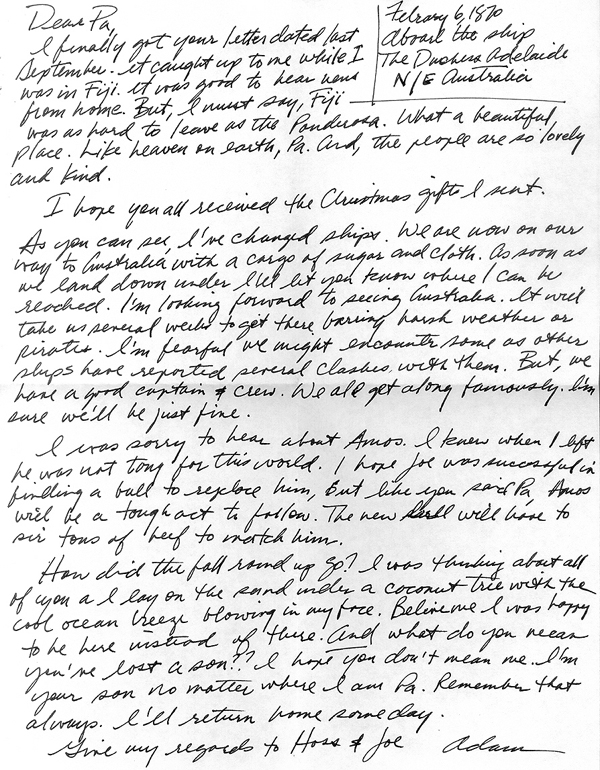 Dear Pa,
Febrary 6, 1870
aboard the ship
The Duchess Adelaide
N/E Australia
I finally got your letter dated last
September. it caught up to me while I
was in Fiji. it was good to hear news
from home. But, I must say, Fiji
was as hard to leave as the Ponderosa. What a beautiful,
place. Like heaven on earth, Pa. And, the people are so lovely
and kind.
I hope you all received the Christmas gifts I sent.
As you can see, I've changed ships. We are now on our
way to Australia with a cargo of sugar and cloth. As soon as
we land down under I'll let you know where I can be
reached. I'm looking forward to seeing Australia. It will
take us several weeks to get there barring harsh weather or
pirates. I'm fearful we might encounter some as other
ships have reported several clashes with them. But, we
have a good captain & crew. We all get along famously. I'm
sure we'll be just fine.
I was sorry to hear about Amos. I knew when I left
he was not long for this world. I hope Joe was successful in
finding a bull to replace him, but like you said Pa, Amos
will be a tough act to follow. The new bull will have to
sir tons of beef to match him.
How did the fall round up go? I was thinking about all
of you as I lay on the sand under a coconut tree with the
cool ocean breeze blowing in my face. Believe me I was happy
to be here instead of there. And what do you mean
you've lost a son?? I hope you don't mean me. I'm
your son no matter where I am Pa. Remember that
always. I'll return home someday.
Give my regards to Hoss & Joe Adam